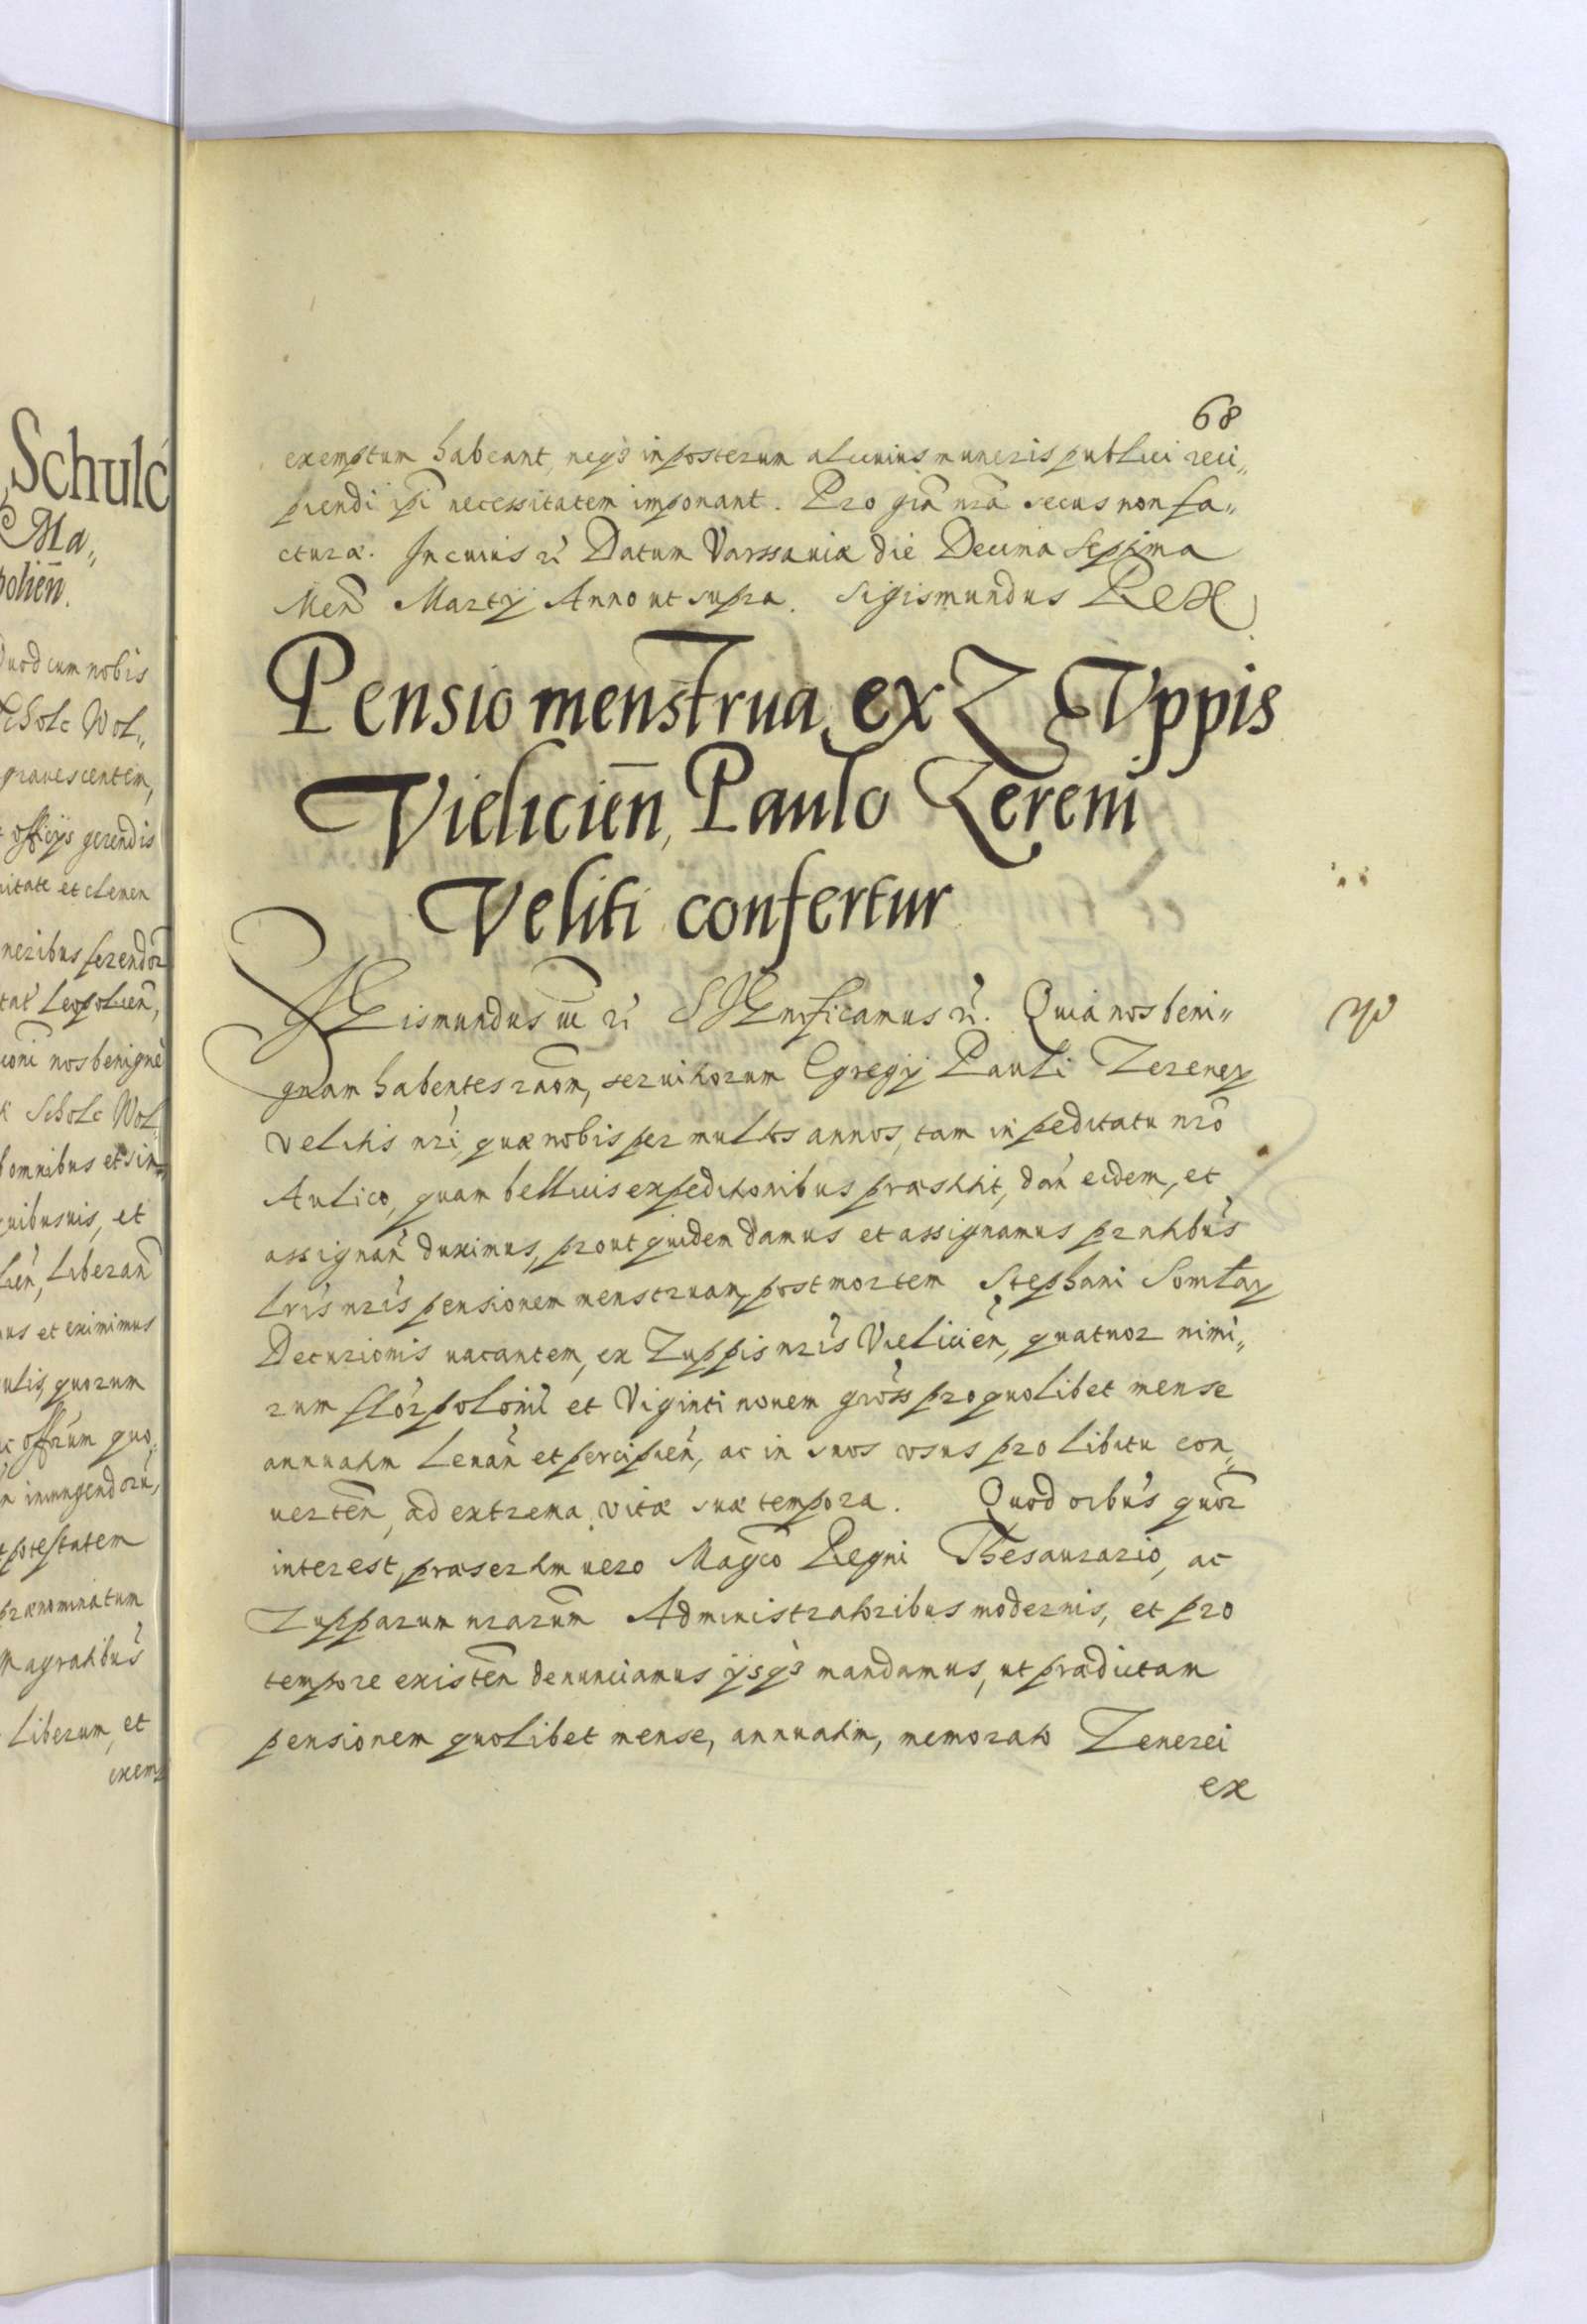 Schulc
Ma„
polieñ.
Quod cum nobis
Scholc Wol„
grauescentem,
officijs gerendis
nitate et clemen
neribus ferendor̃
tat̃ Leopolieñ,
ioni nos benignè
Scholc Wol„
omnibus et sin„
quibusuis, et
lieñ, liberañ
us et eximimus
ulis, quorum
ac offrũm quo„
iniungendorũ,
potestatem
prænominatum
Magratibũs
liberum, et
exem„
68
exemptum habeant, neq́ȝ inposterum alicuius muneris publici reci„
piendi ip̃i necessitatem imponant. Pro gr̃a nr̃a secus non fa„
cturæ. In cuius rei Datum Varssauiæ die Decima Septima
Meñ Martij Anno ut supra. Sigismundus Rex
Pensio menstrua ex ZVppis
Vielicieñ, Paulo Zereni
Veliti confertur
SIGismundus iii rẽ SIGnificamus rẽ. Quia nos beni„
gnam habentes rãom, seruitiorum Egregij Pauli Zereney
velitis nr̃i, quæ nobis per multos annos, tam in peditatu nr̃o
Aulico, quam bellicis expeditionibus præstitit, dañ eidem, et
assignañ duximus, prout quidem damus et assignamus pr̃ntibũs
lr̃is nr̃is pensionem menstruam, post mortem Stephani Somłay
Decurionis uacantem, ex Zuppis nr̃is Vielicieñ, quatuor nimi„
rum flor̃ polonĩ et Viginti nouem gros̃s pro quolibet mense
annuatim leuañ et percipieñ, ac in suos usus pro libitu con„
uerteñ, ad extrema vitæ suæ tempora. Quod oĩbus quor̃
interest, præsertim uero Magc̃o Regni Thesaurario, ac
Zupparum nr̃arum Administratoribus modernis, et pro
tempore existeñ denunciamus ijsq́ȝ mandamus, ut prædictam
pensionem quolibet mense, annuatim, memorato Zenerei
ex